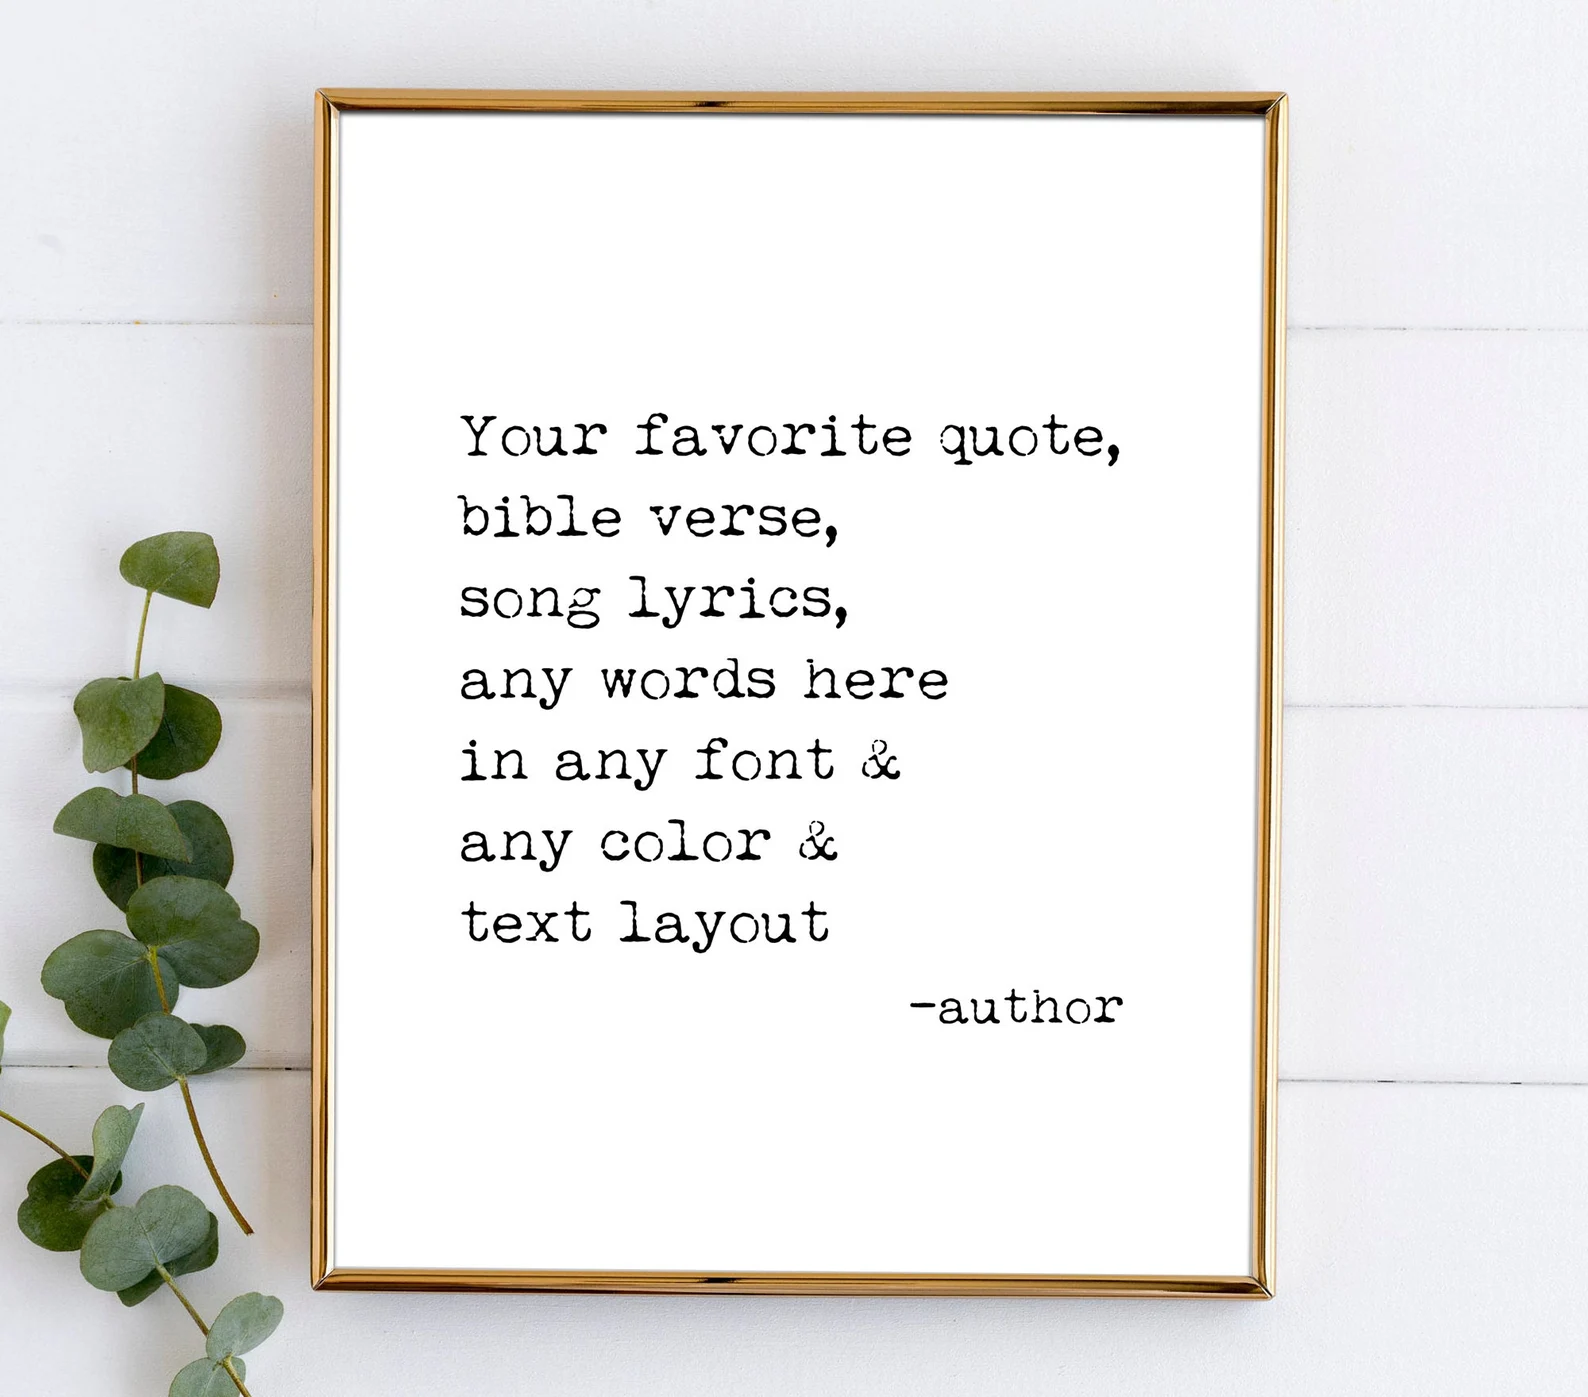 Your favorite quote,
bible verse,
song lyrics,
any words here
in any font &
any color &
text layout
-author